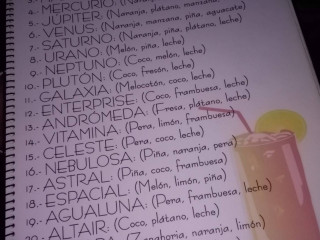 MERCURIO: (Naranja, manzana
5.- JÚPITER: (Naranja, plátano, manzana
6.- VENUS: (Naranja, piña, aguacate)
7.- SATURNO: (Naranja, plátano, leche)
8.- URANO: (Melón, piña, leche)
9.- NEPTUNO: (Coco, melón, leche)
10.- PLUTÓN: (Coco, fresón, leche)
11.- GALAXIA: (Melocotón, coco, leche)
12.- ENTERPRISE: (Coco, frambuesa, leche)
13.- ANDRÓMEDA: (Fresa, plátano, leche)
14.- VITAMINA: (Pera, limón, frambuesa)
15.- CELESTE: (Pera, coco, leche)
16.- NEBULOSA: (Piña, naranja, pera)
17.- ASTRAL: (Piña, coco, frambuesa)
18.- ESPACIAL: (Melón, limón, piña)
19.- AGUALUNA: (Pera, frambuesa, leche)
ALTAIR: (Coco, plátano, leche)
(Zanahoria, naranja, limón)